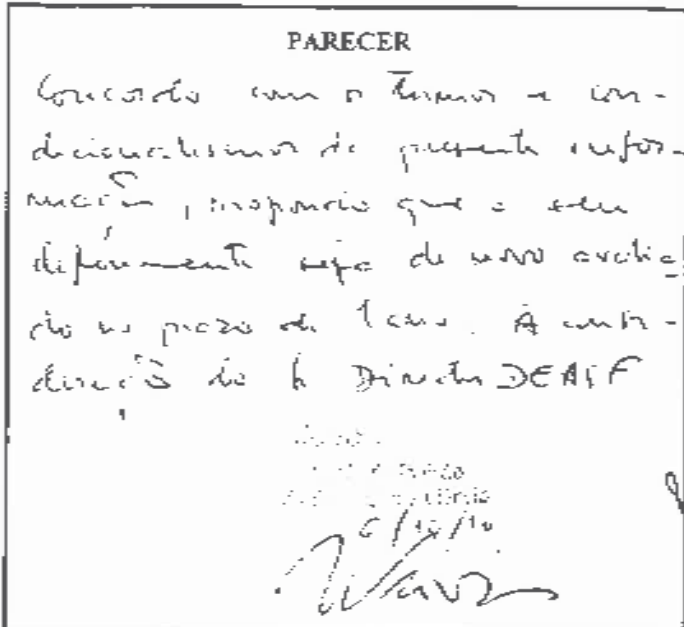 PARECER
Concordo com os termos e con-
dicionalismos da presente infor-
mação, propondo que o seu
diferimento seja de novo avalia
do no prazo de 1 ano. À consi-
deração do Sr Director DEASF
6/10/10